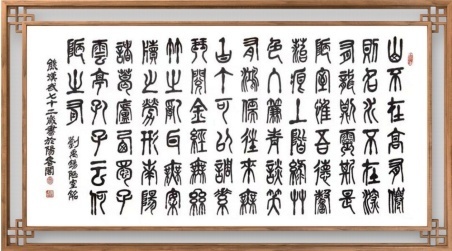 山不在高有僊
則名水不在深
有龍則靈斯是
陋室惟吾德馨
苔痕上階綠草
色入簾青談笑
有鴻儒往來無
白丁可以調素
琴閱金經無絲
竹之亂耳無案
牘之勞形南陽
諸葛廬西蜀子
雲亭孔子云何
陋之有
劉禹錫陋室銘
七十二歲書於陽春閣